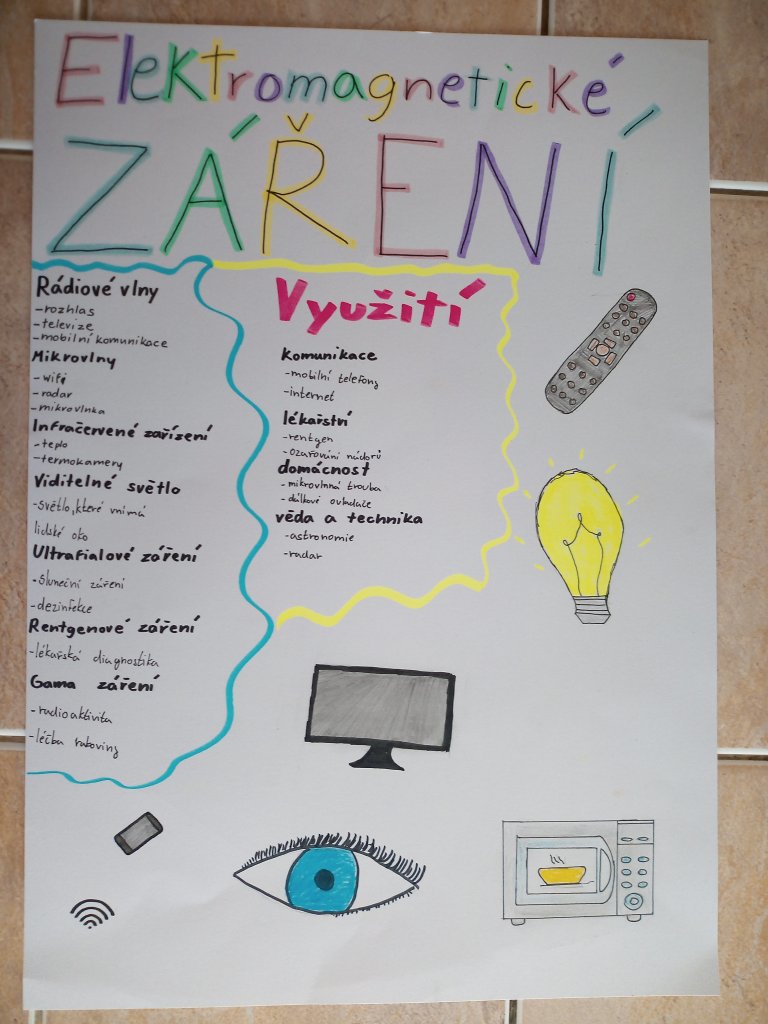 Elektromagnetické
ZÁŘENÍ
Rádiové vlny
-rozhlas
-televize
-mobilní komunikace
Mikrovlny
-wifi
-radar
-mikrovlnka
Infračervené zařízení
-teplo
-termokamery
Viditelné světlo
-světlo, které vnímá
lidské oko
Ultrafialové záření
-sluneční záření
-dezinfekce
Rentgenové záření
-lékařská diagnostika
Gama záření
-radioaktivita
-léčba rakoviny
Využití
Komunikace
-mobilní telefony
-internet
lékařství
-rentgen
-ozařování nádorů
domácnost
-mikrovlnná trouba
-dálkové ovladače
věda a technika
-astronomie
-radar